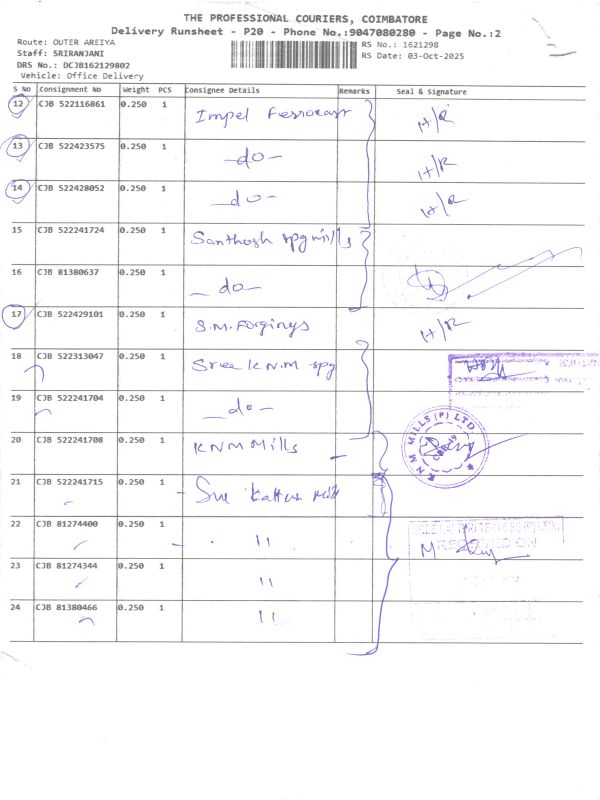 THE PROFESSIONAL COURIERS, COIMBATORE
Delivery Runsheet - P20 - Phone No.:9047080280 - Page No.:2
Route: OUTER AREIYA
Staff: SRIRANJANI
DRS No.: DCJB162129802
Vehicle: Office Delivery
RS No.: 1621298
RS Date: 03-Oct-2025
S No Consignment No Weight PCS Consignee Details Remarks Seal & Signature
12 CJB 522116861 0.250 1 Impel Ferrocast H/R
13 CJB 522423575 1 0.250 -do- H/R
14 CJB 522428052 0.250 1 -do- H/R
15 CJB 522241724 0.250 1 Santhosh spg mills
16 CJB 81380637 0.250 1 -do-
17 CJB 522429101 0.250 1 S.M. Forgings H/R
18 CJB 522313047 0.250 1 Sree K.N.M spg
19 CJB 522241704 0.250 1 -do-
20 CJB 522241708 0.250 1 KNM Mills
MILLS (P) LTD
21 CJB 522241715 0.250 1
22 CJB 81274400 0.250 1 "
23 CJB 81274344 0.250 1 "
24 CJB 81380466 0.250 1 "